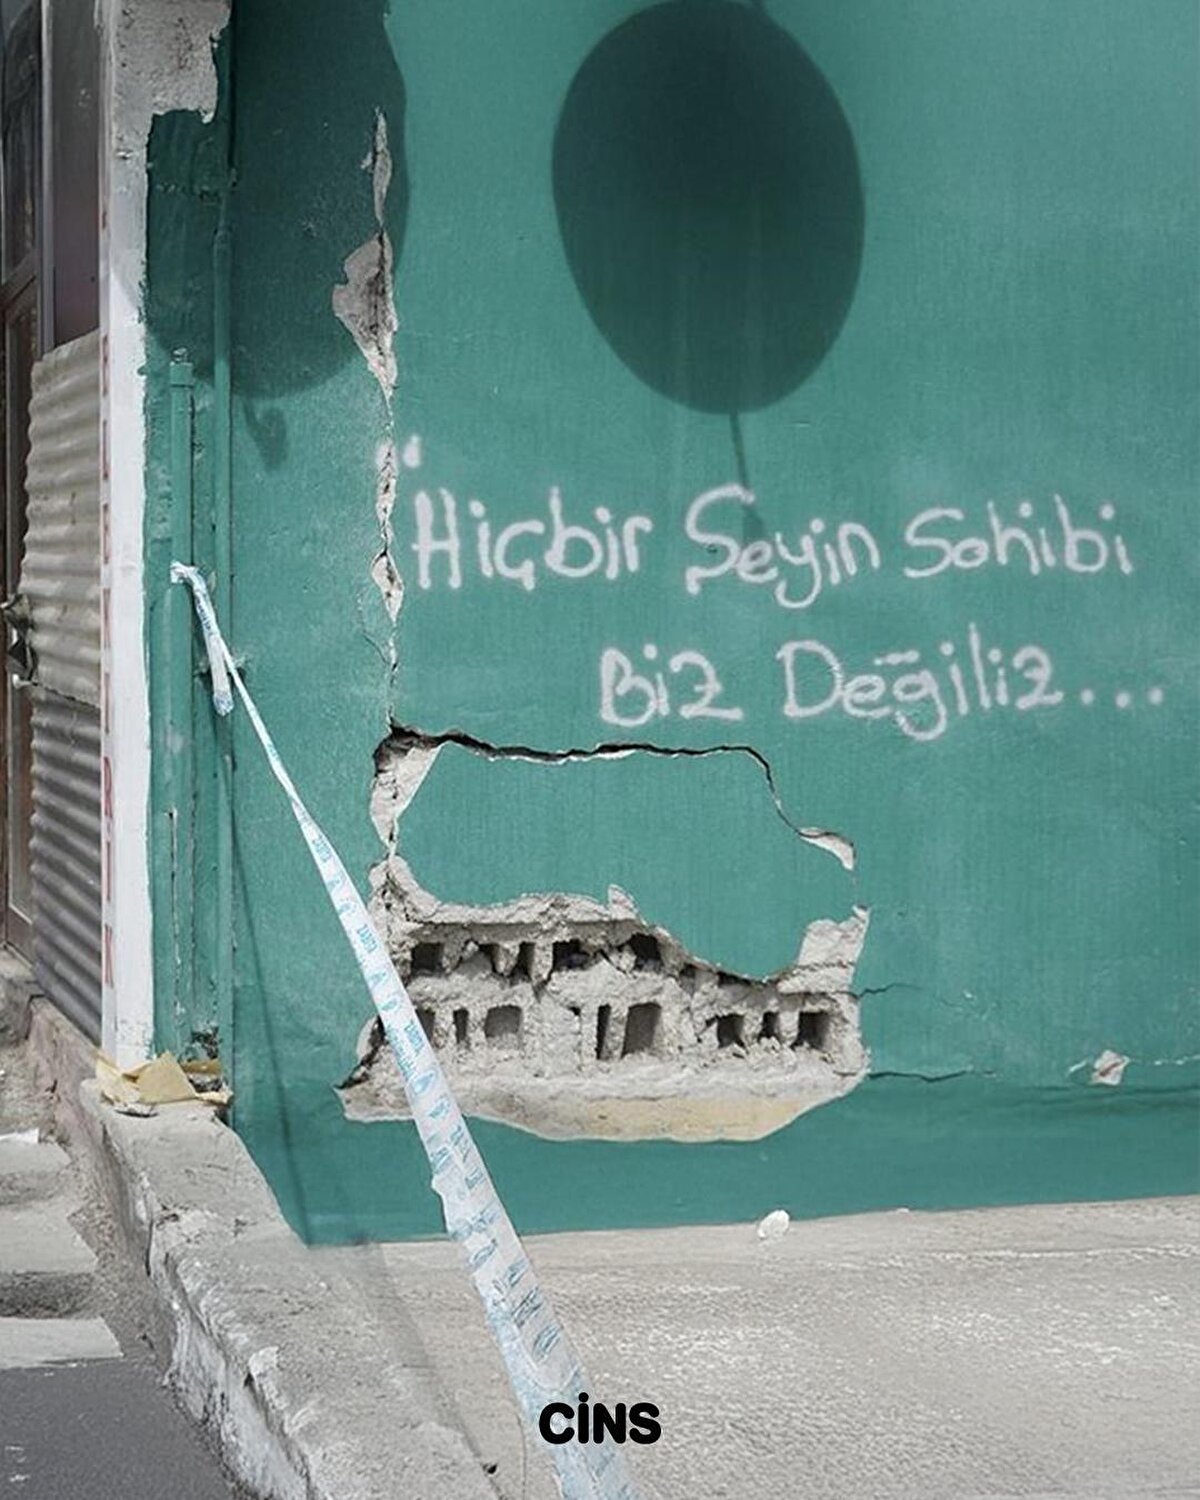 "Hiçbir Şeyin Sahibi
Biz Değiliz...
CİNS